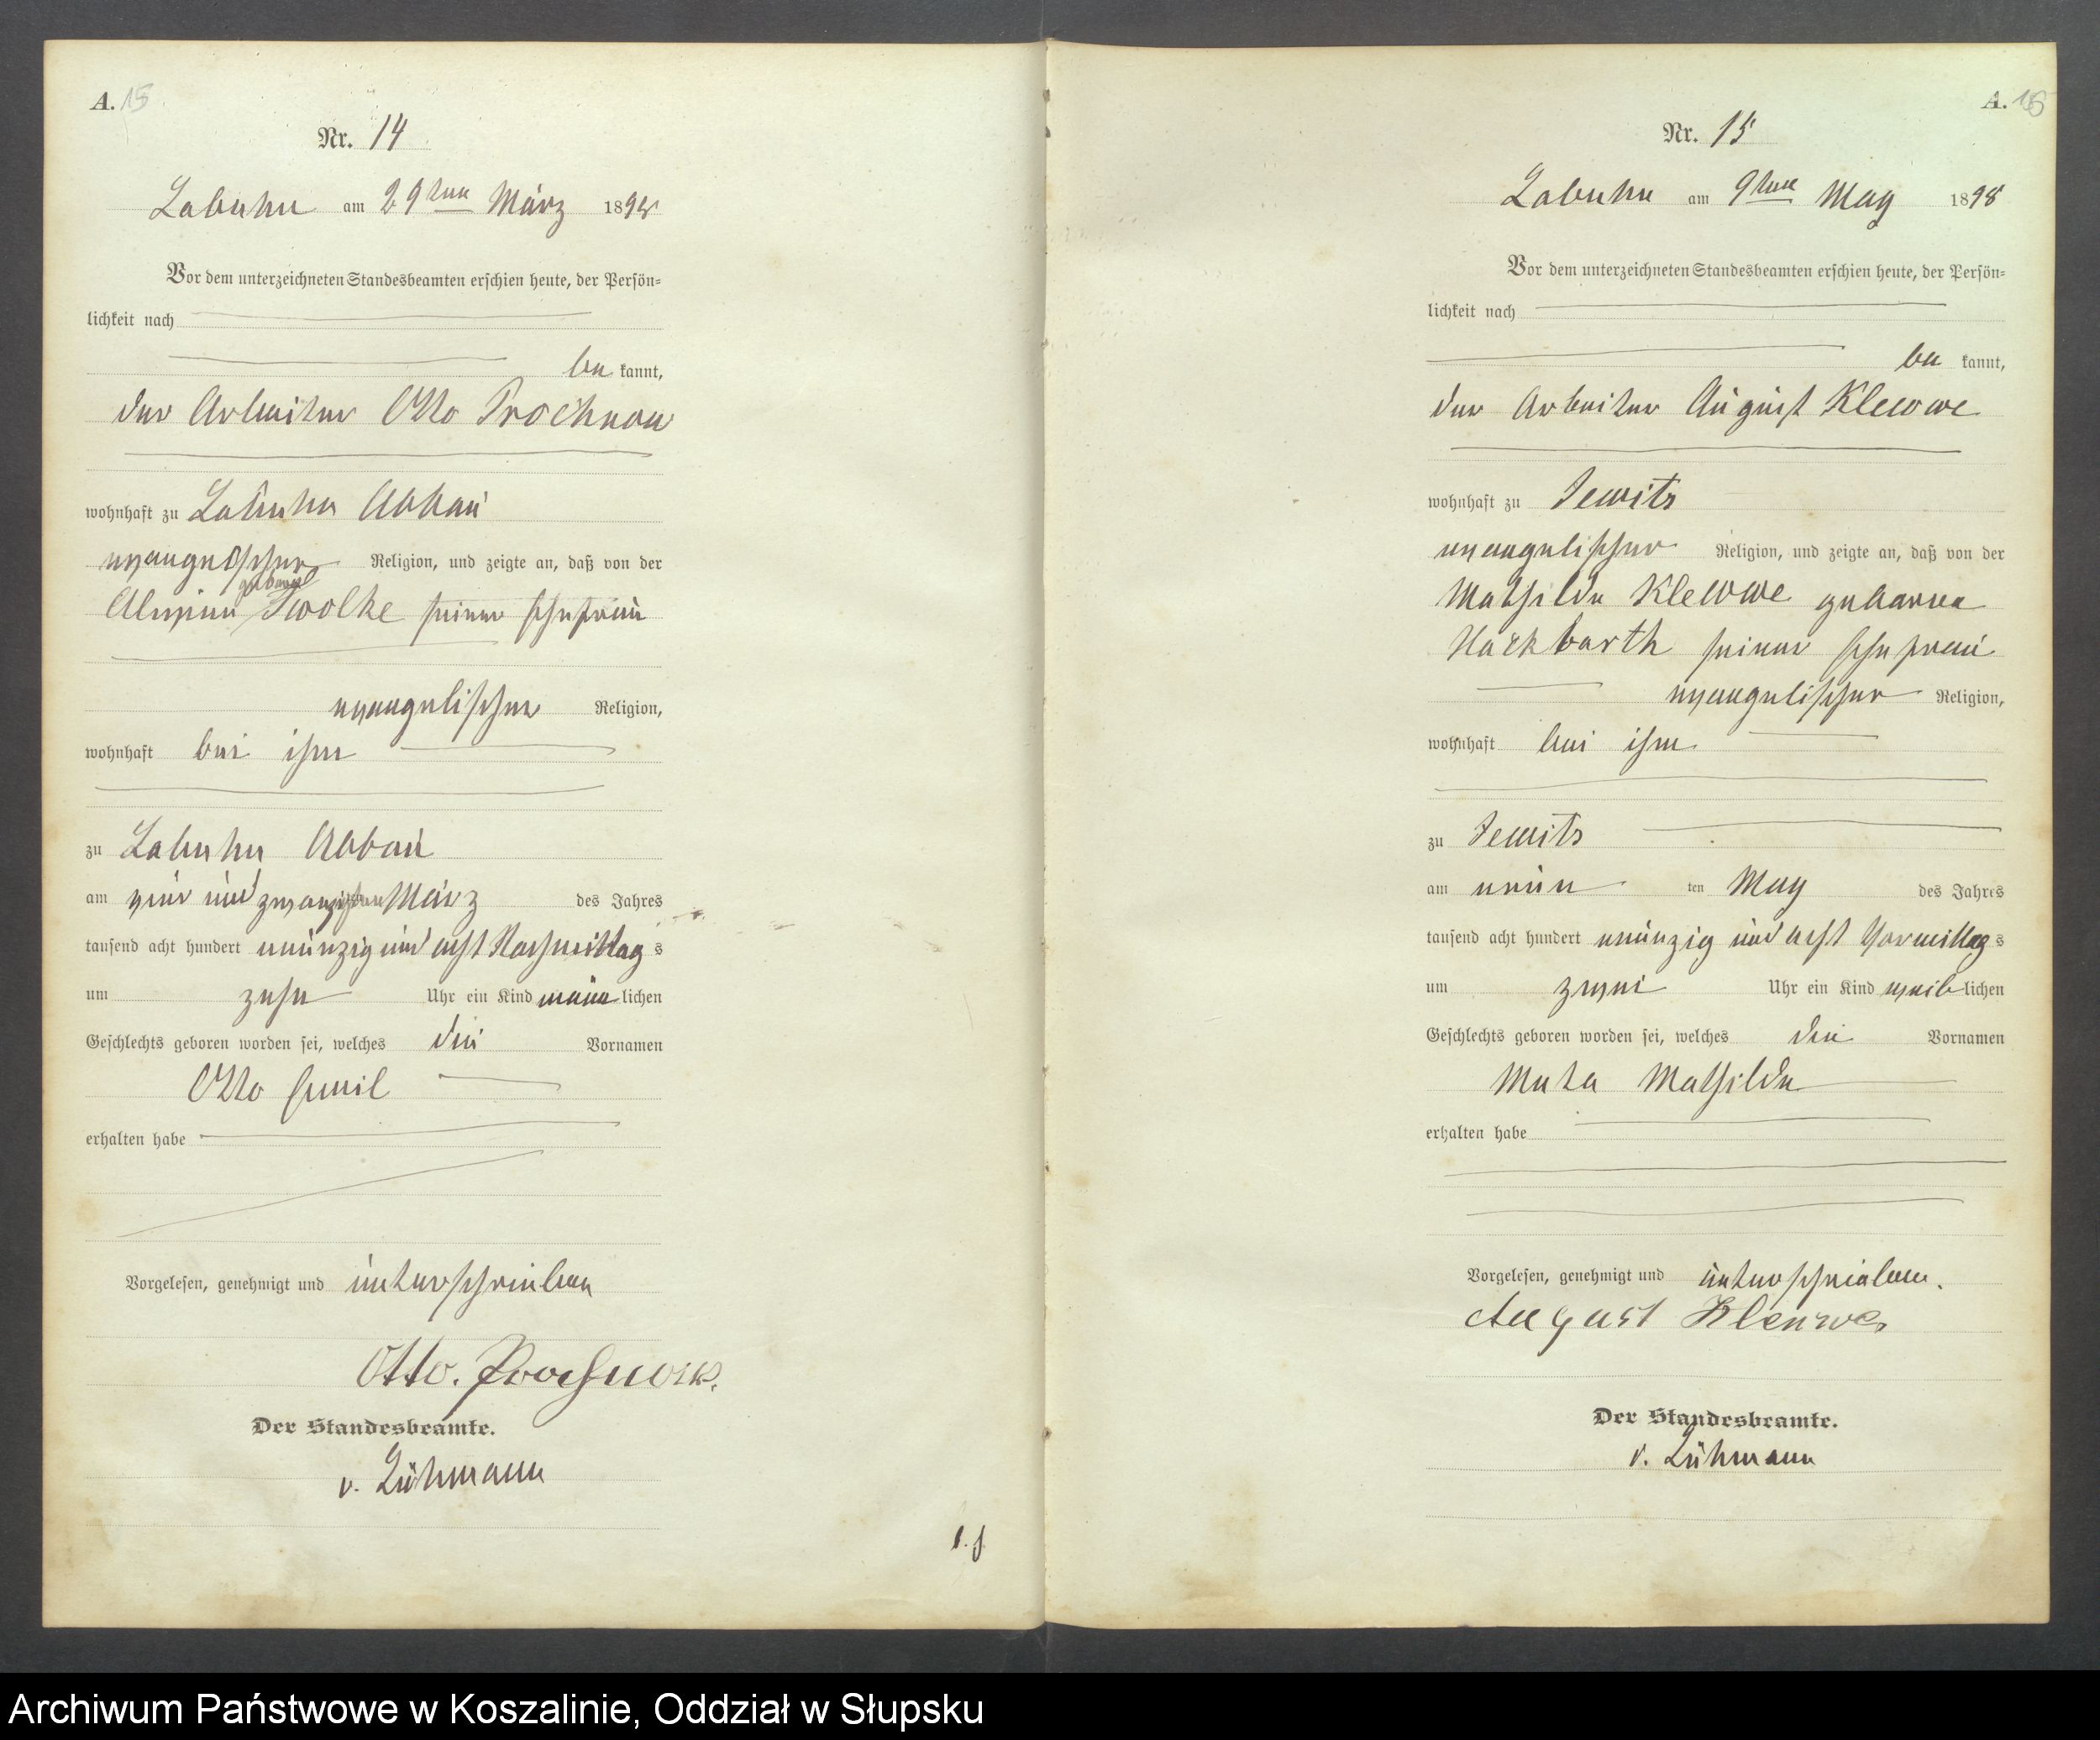 A. 15
Nr. 14
Labuhn am 29ten März 1898
Vor dem unterzeichneten Standesbeamten erschien heute, der Persön=
lichkeit nach
be kannt,
der Arbeiter Otto Prochnow
wohnhaft zu Labuhn Abbau
evangelischer Religion, und zeigte an, daß von der
geborene
Swolke seiner Ehefrau
evangelischer Religion,
wohnhaft bei ihm
zu Labuhn Abbau
am vier und zwanzigsten März des Jahres
tausend acht hundert neunzig und acht Nachmittag s
um zehn Uhr ein Kind männ lichen
Geschlechts geboren worden sei, welches die Vornamen
Otto Emil
erhalten habe
Vorgelesen, genehmigt und unterschrieben
Otto. Prochnow.
Der Standesbeamte.
v. Lühmann
A. 16
Nr. 15
Labuhn am 9ten May 1898
Vor dem unterzeichneten Standesbeamten erschien heute, der Persön=
lichkeit nach
be kannt,
der Arbeiter August Klewwe
wohnhaft zu Jewits
evangelischer Religion, und zeigte an, daß von der
Mathilde Klewwe geborene
Hackbarth seiner Ehefrau
evangelischer Religion,
wohnhaft bei ihm
zu Jewits
am neun ten May des Jahres
tausend acht hundert neunzig und acht Vormittag s
um zwei Uhr ein Kind weib lichen
Geschlechts geboren worden sei, welches die Vornamen
Meta Mathilde
erhalten habe
Vorgelesen, genehmigt und unterschrieben.
August Klewwe
Der Standesbeamte.
v. Lühmann
Archiwum Państwowe w Koszalinie, Oddział w Słupsku